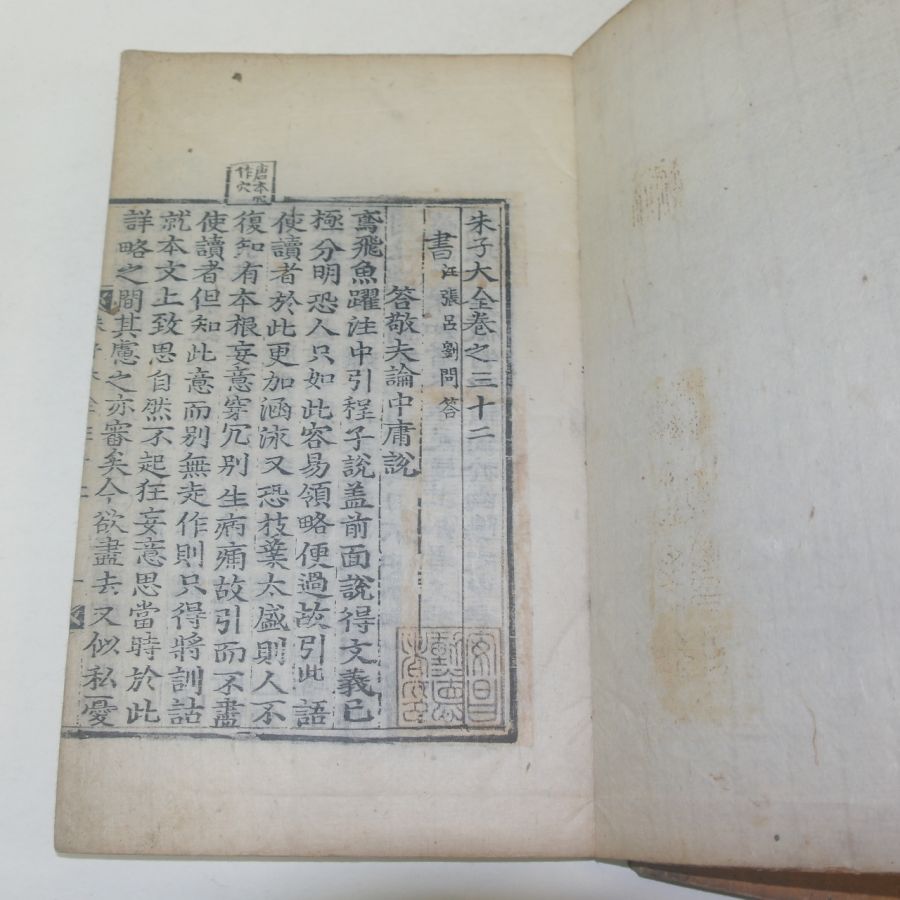 朱子大全卷之三十二
書 汪張呂劉問答
答敬夫論中庸說
鳶飛魚躍注中引程子說盖前面說得文義已
極分明恐人只如此容易領略便過故引此語
使讀者於此更加涵泳又恐枝葉太盛則人不
復知有本根妄意穿冗别生病痛故引而不盡
使讀者但知此意而别無走作則只得將訓詁
就本文上致思自然不起狂妄意思當時於此
詳略之間其慮之亦審矣今欲盡去又似私憂
唐本冗
作穴